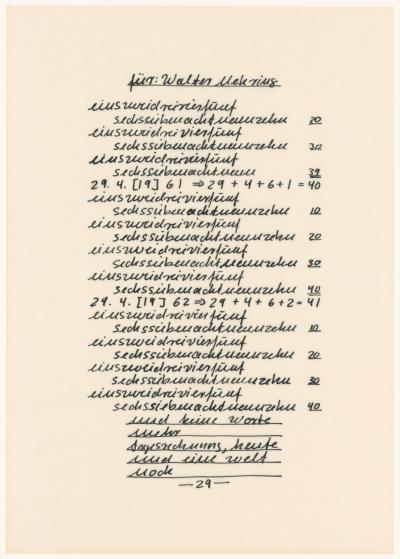 für: Walter Mehring
einszweidreivierfünf
sechssiebenachtneunzehn 20
einszweidreivierfünf
sechssiebenachtneunzehn 30
einszweidreivierfünf
sechssiebenachtneun 39
29. 4. [19] 61 ⇒ 29 + 4 + 6 + 1 = 40
einszweidreivierfünf
sechssiebenachtneunzehn 10
einszweidreivierfünf
sechssiebenachtneunzehn 20
einszweidreivierfünf
sechssiebenachtneunzehn 30
einszweidreivierfünf
sechssiebenachtneunzehn 40
29. 4. [19] 62 ⇒ 29 + 4 + 6 + 2 = 41
einszweidreivierfünf
sechssiebenachtneunzehn 10
einszweidreivierfünf
sechssiebenachtneunzehn 20
einszweidreivierfünf
sechssiebenachtneunzehn 30
einszweidreivierfünf
sechssiebenachtneunzehn 40
und keine Worte
mehr
tagesrechnung, heute
und eine welt
noch
—29—